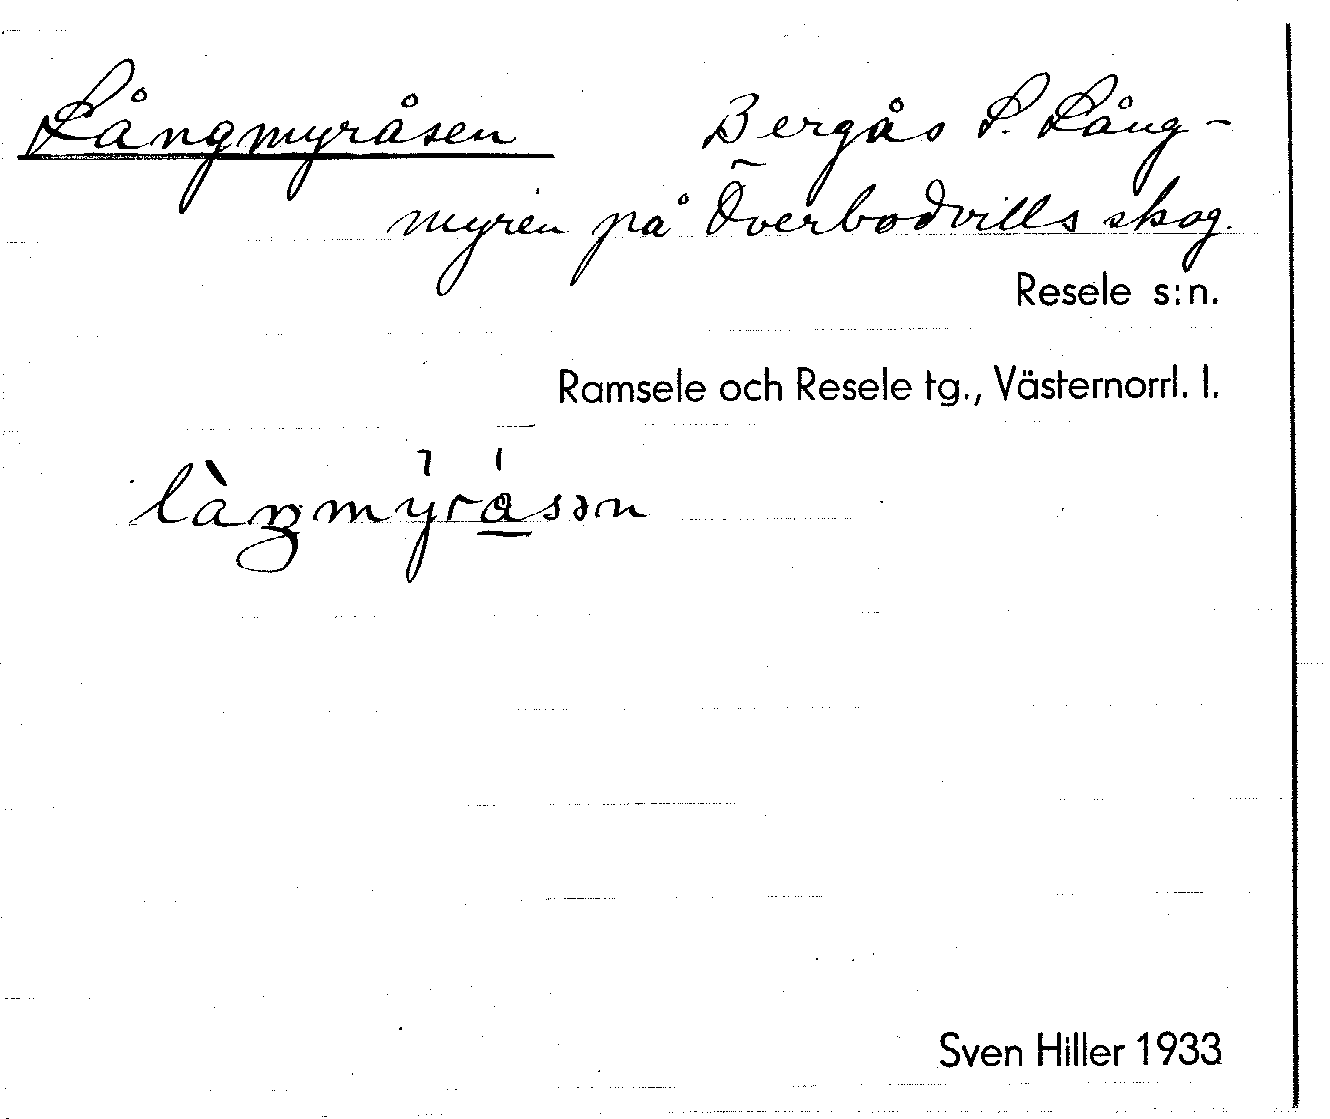 Långmyråsen Bergås S. Lång-
myren på Överbodvills skog.
Resele s:n.
Ramsele och Resele tg., Västernorrl. l.
Sven Hiller 1933